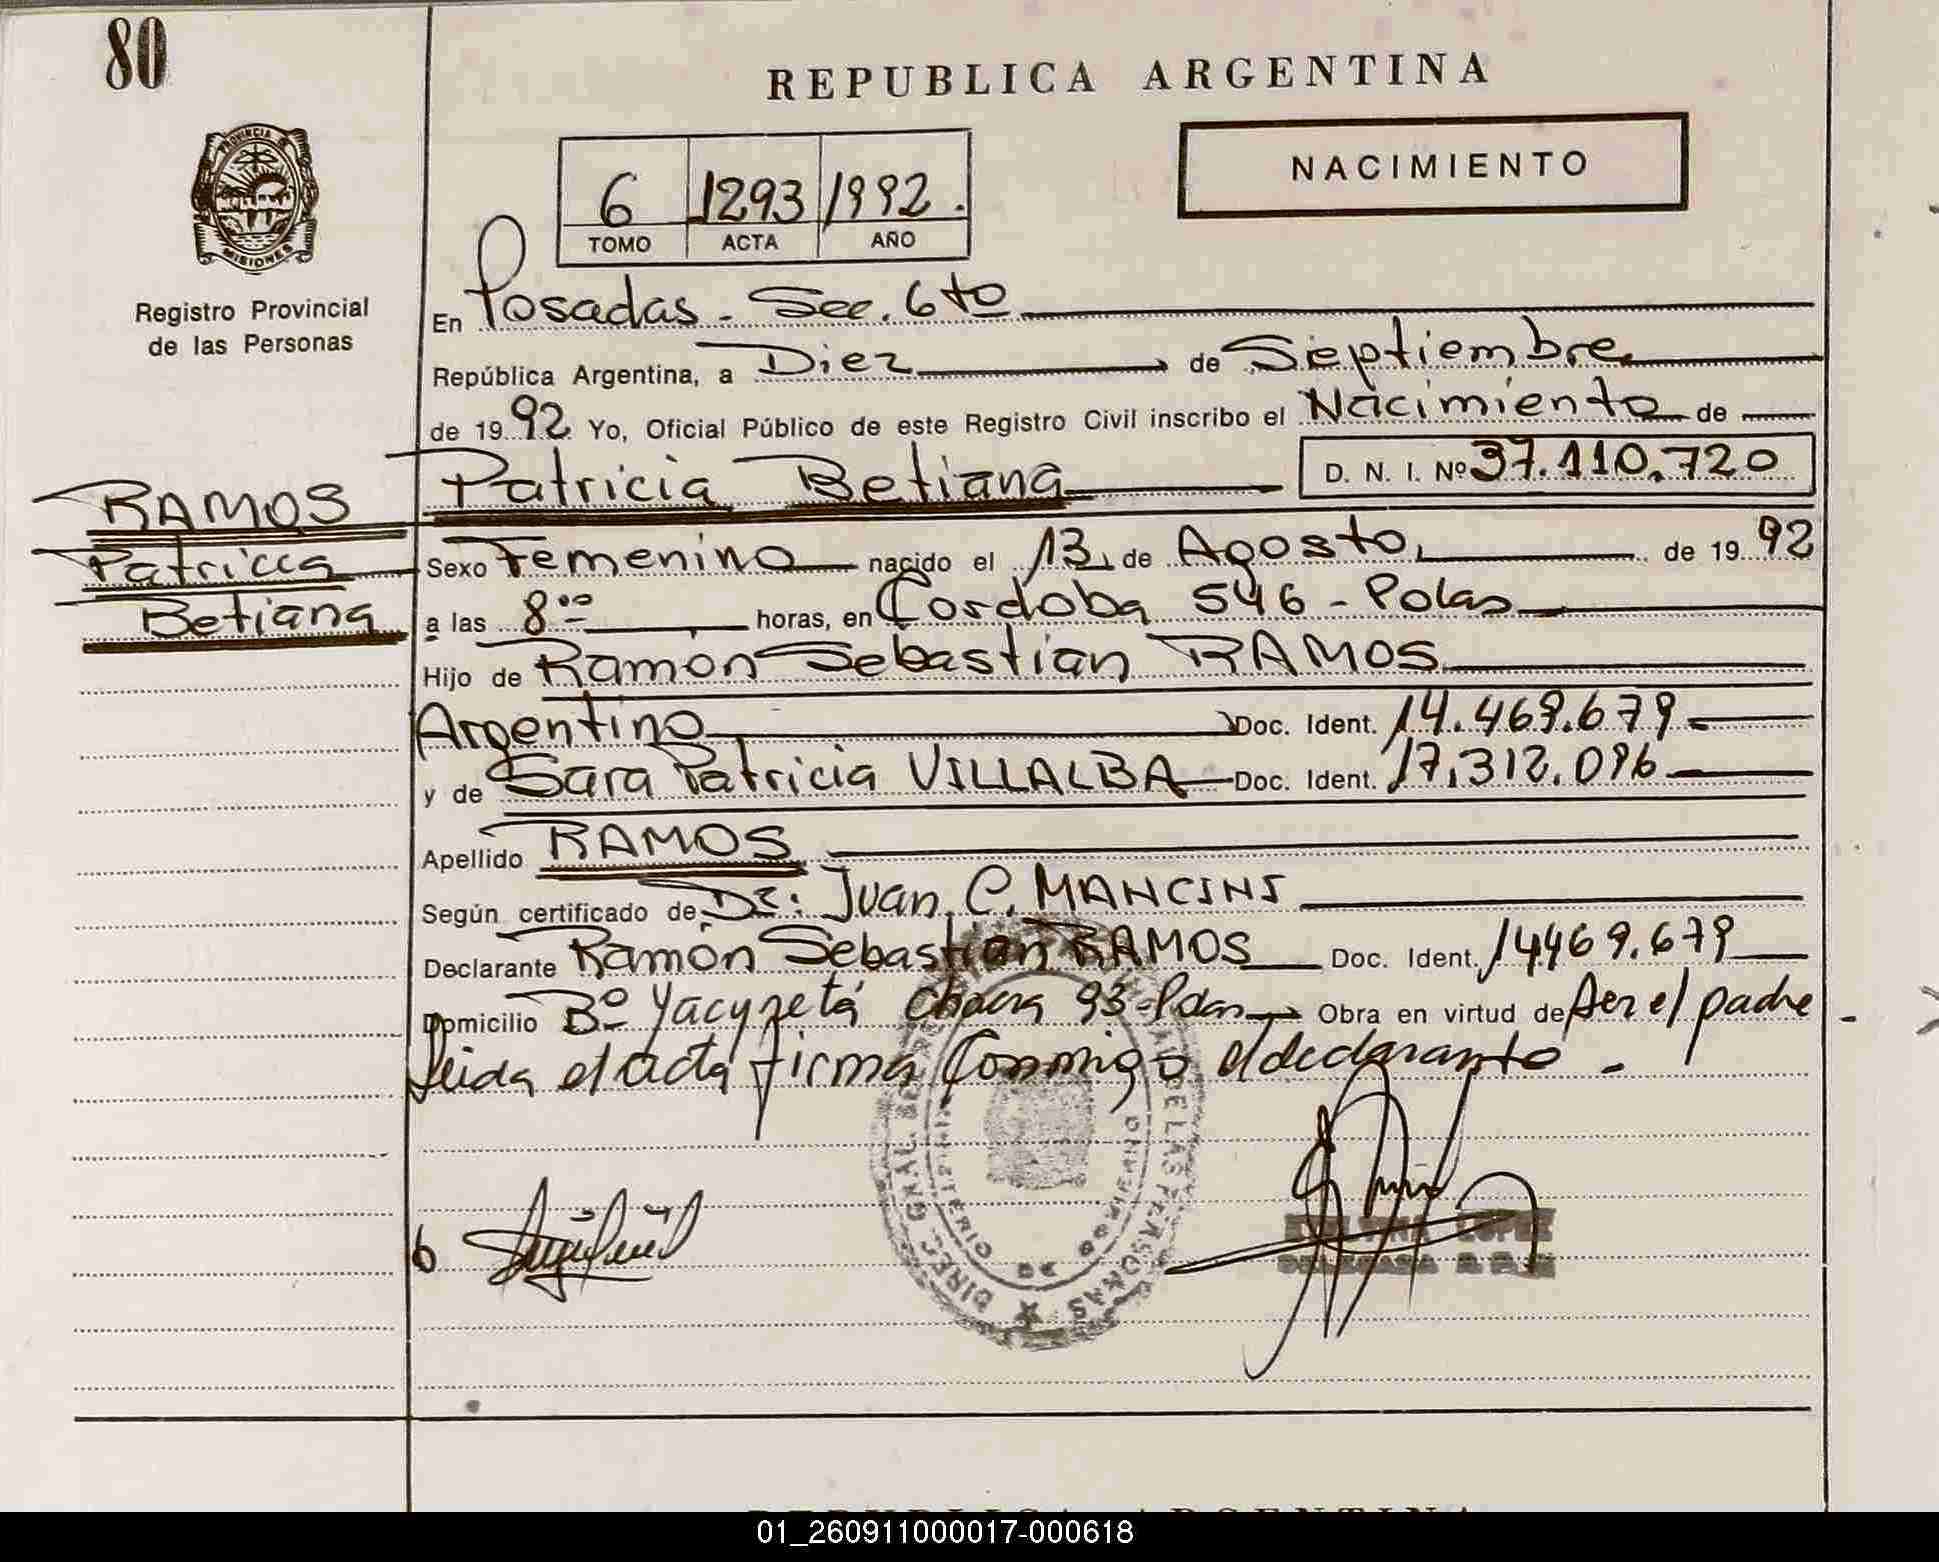 80
REPUBLICA ARGENTINA
NACIMIENTO
PROVINCIA
MISIONES
Registro Provincial
de las Personas
6 1293 1992.
TOMO ACTA AÑO
En Posadas - Sec. 6to
República Argentina, a Diez de Septiembre
de 1992 Yo, Oficial Público de este Registro Civil inscribo el Nacimiento de
Patricia Betiana D. N. I. Nº 37.110.720
RAMOS
Patricia
Betiana
Sexo Femenino nacido el 13 de Agosto de 1992
a las 8ºº horas, en Cordoba 546 - Pdas
Hijo de Ramon Sebastian RAMOS
Argentino Doc. Ident. 14.469.679
y de Sara Patricia VILLALBA Doc. Ident. 17.312.096
Apellido RAMOS
Según certificado de Dr: Juan C. MANCINI
Declarante Ramón Sebastian RAMOS Doc. Ident. 14469.679
Domicilio Bº Yacyretá Chacra 93-Pdas Obra en virtud de Ser el padre
Leida el acta firma Conmigo el declarante.
DIREC. GRAL. DE LAS PERSONAS
MINISTERIO DE GOBIERNO
LOPEZ
DELEGADA
01_260911000017-000618